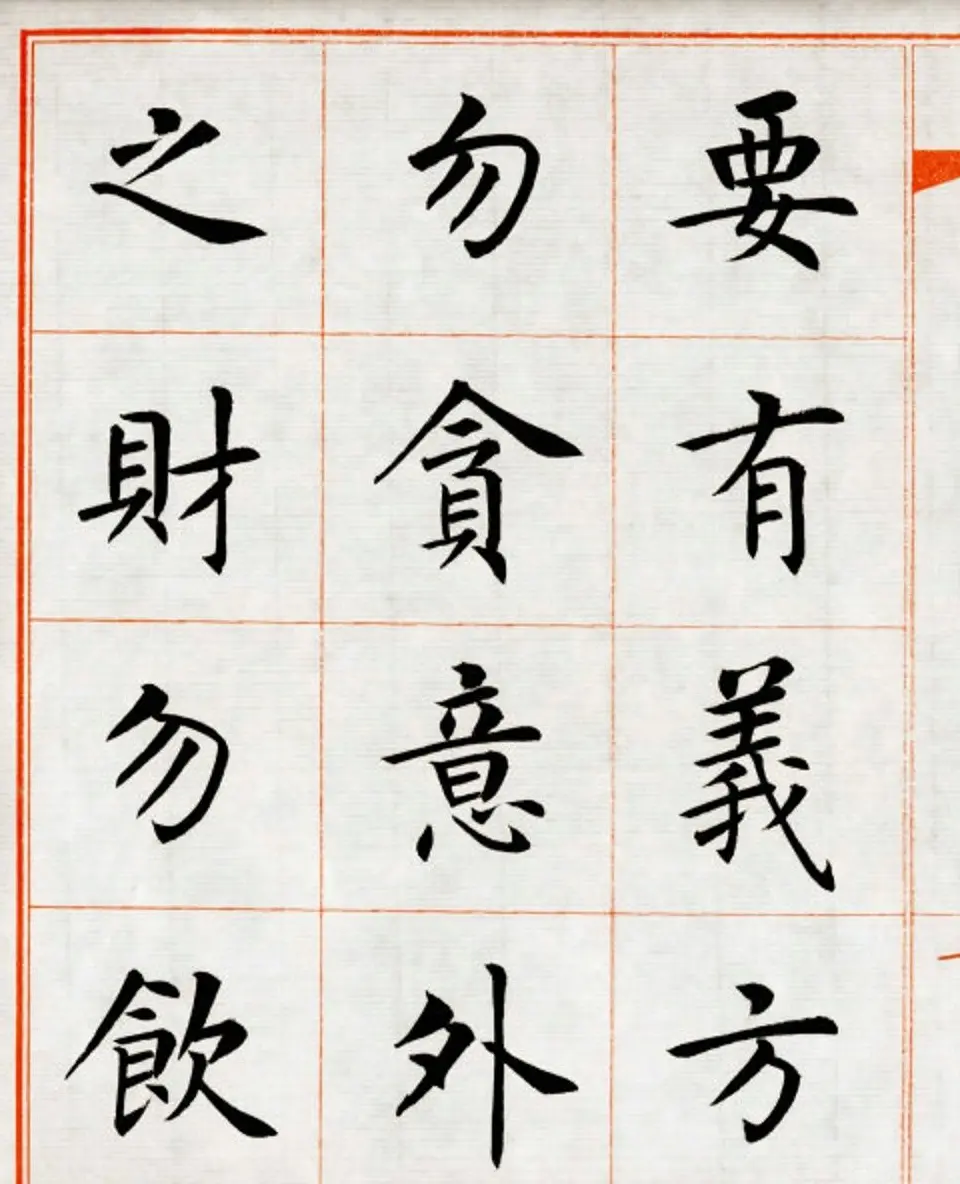 要有義方
勿貪意外
之財勿飲